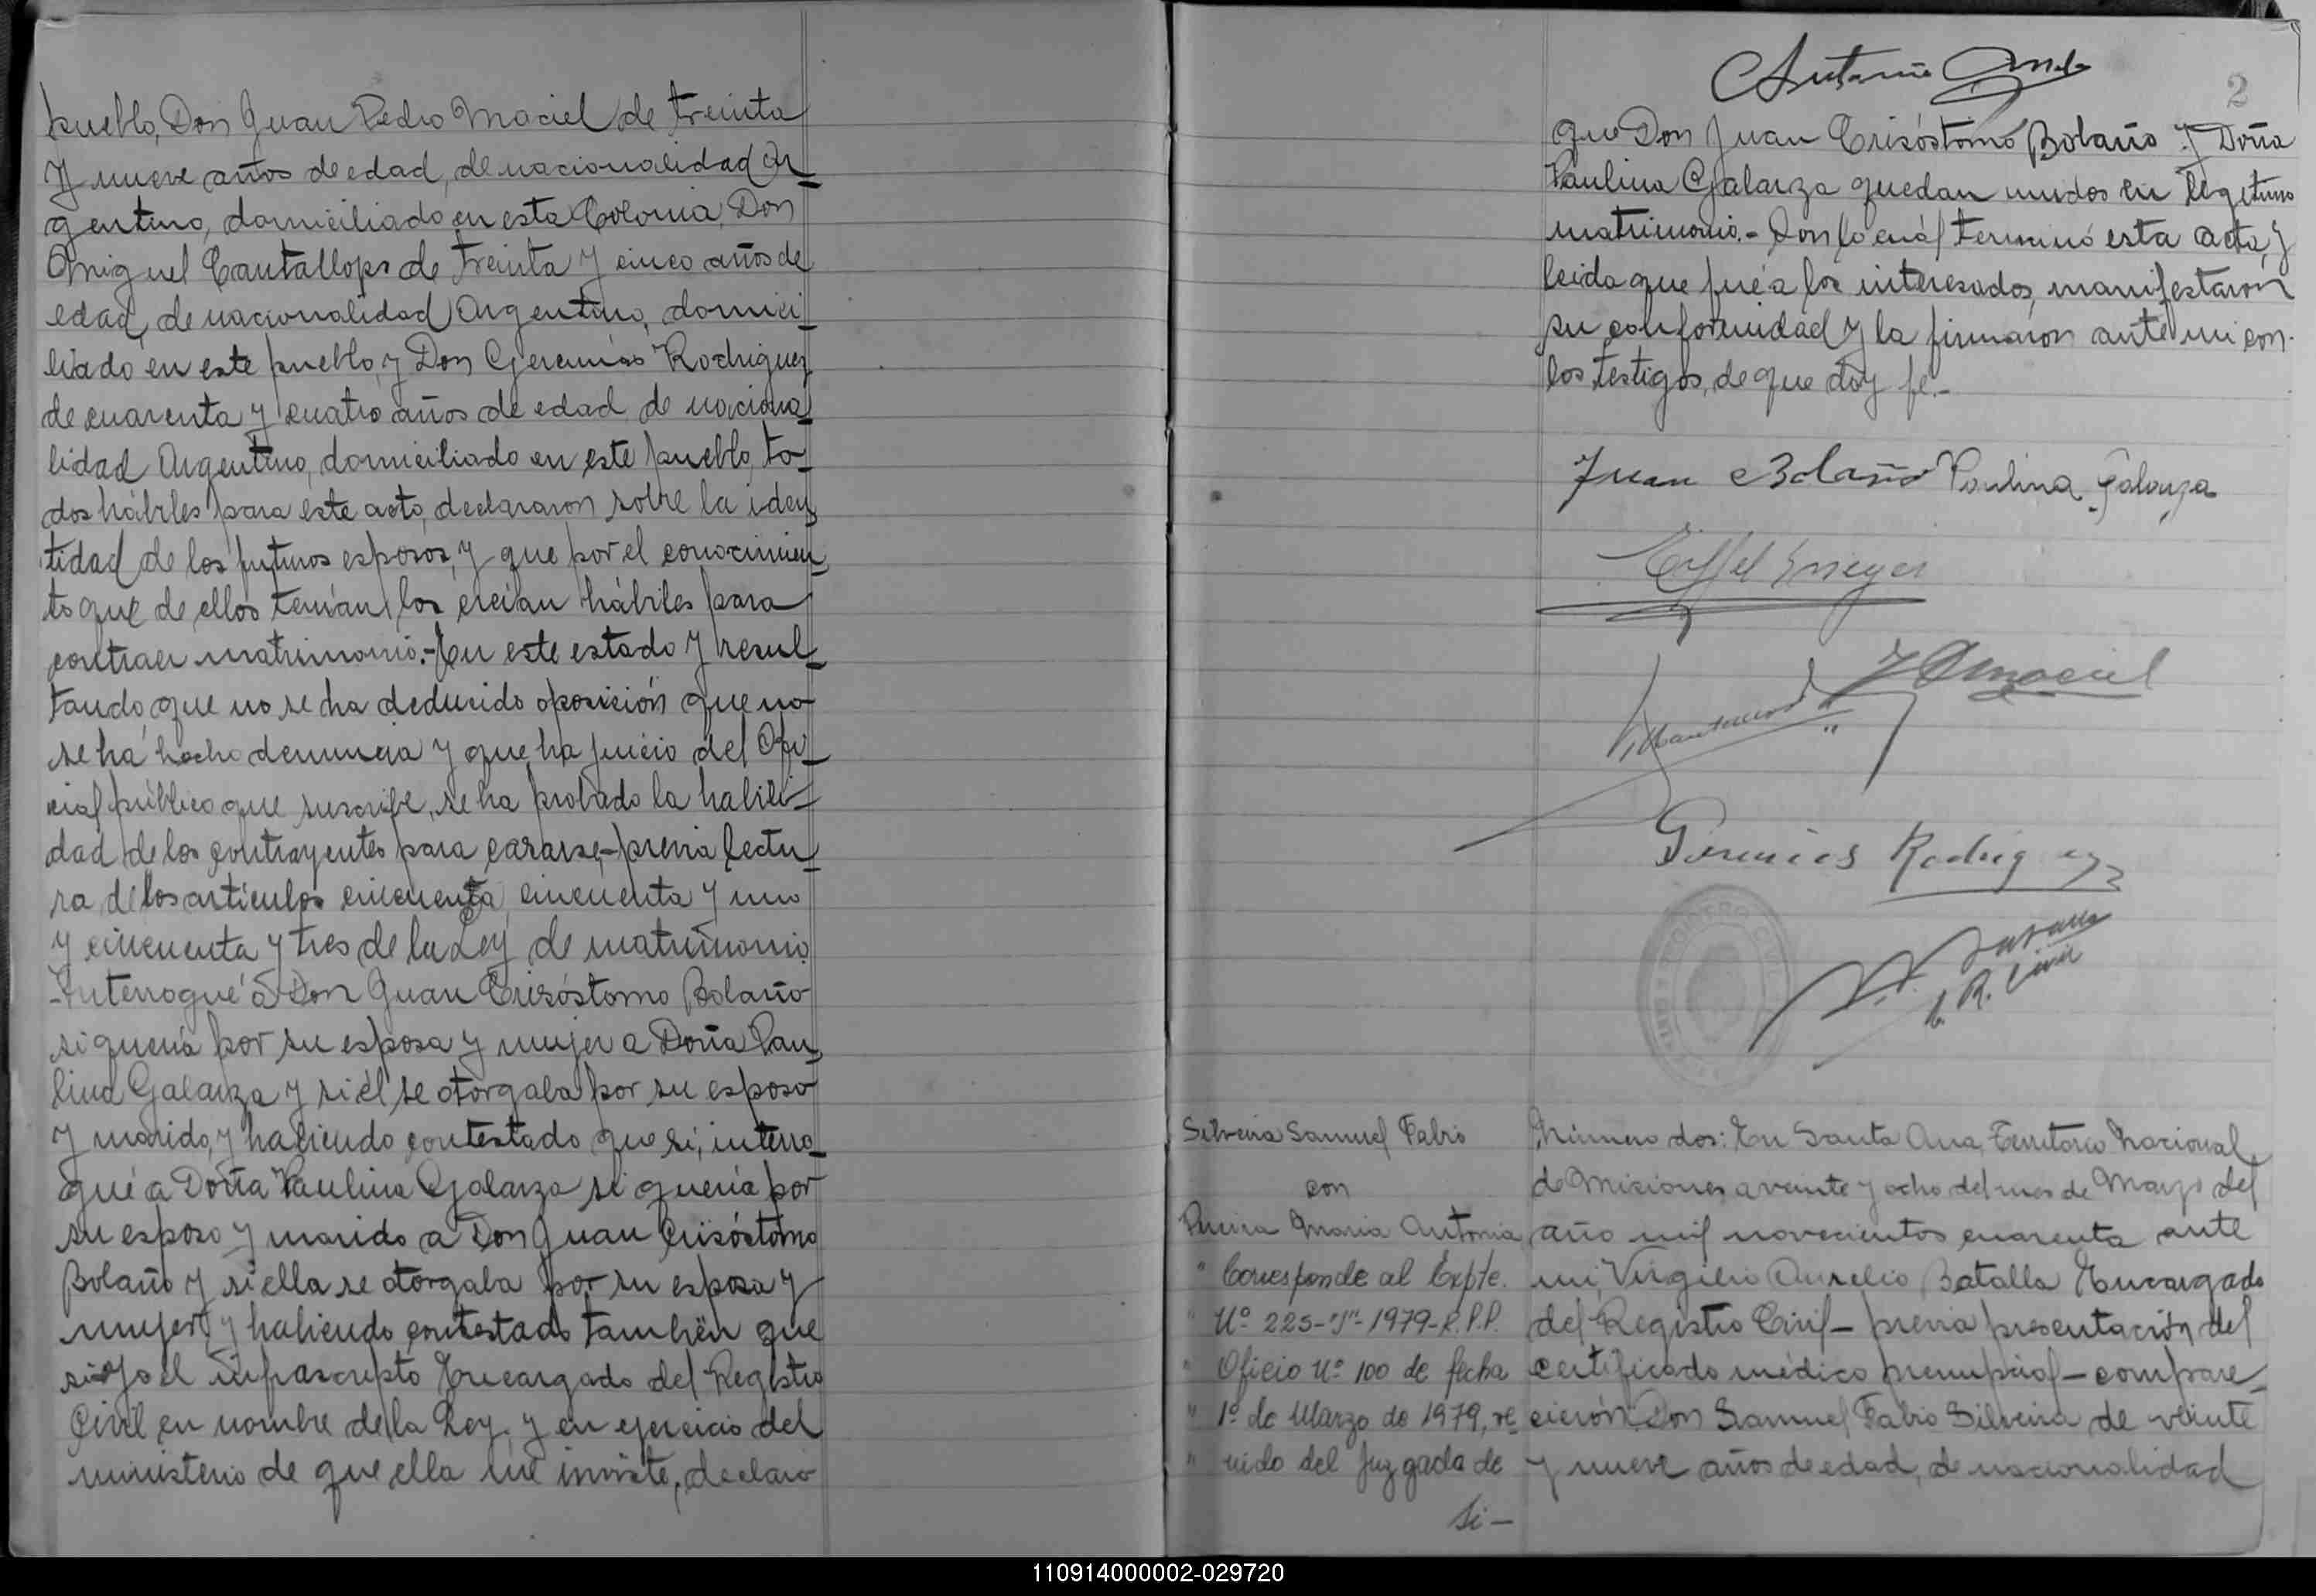 pueblo, Don Juan Pedro Maciel de treinta
y nueve años de edad, de nacionalidad Ar_
gentino, domiciliado en esta Colonia, Don
Miguel Cantallops de treinta y cinco años de
edad, de nacionalidad Argentino, domici_
liado en este pueblo, y Don Geremías Rodriguez
de cuarenta y cuatro años de edad de naciona_
lidad Argentino, domiciliado en este pueblo, to_
dos hábiles para este acto, declararon sobre la iden_
tidad de los futuros esposos, y que por el conocimien_
to que de ellos tenían los creían hábiles para
contraer matrimonio.- En este estado y resul_
tando que no se ha deducido oposición que no
se ha hecho denuncia y que ha juicio del Ofi_
cial público que suscribe, se ha probado la habili_
dad de los contrayentes para casarse,-previa lectu_
ra de los artículos cincuenta, cincuenta y uno
y cincuenta y tres de la Ley de matrimonio
-Interrogué a Don Juan Crisóstomo Bolaño
si quería por su esposa y mujer a Doña Pau_
lina Galarza y si él se otorgaba por su esposo
y marido, y habiendo contestado que si, interro_
gué a Doña Paulina Galarza si quería por
su esposo y marido a Don Juan Crisóstomo
Bolaño y si ella se otorgaba por su esposa y
mujer, y habiendo contestado también que
si, yo el infrascripto Encargado del Registro
Civil en nombre de la Ley, y en ejercicio del
ministerio de que ella me inviste, declaro
2
Antonio
que Don Juan Crisóstomo Bolaño y Doña
Paulina Galarza quedan unidos en legítimo
matrimonio.- Con lo cuál terminó esta acta, y
leida que fué a los interesados, manifestaron
su conformidad y la firmaron ante mi con
los testigos, de que doy fé.-
Juan Bolaño Paulina Galarza
Eiffel
J P Maciel
Geremias Rodriguez
E. R. Civil
Silveira Samuel Fabio
con
Pereira Maria Antonia
" Corresponde al Expte.
" Nº 225-"J"-1979-R.P.P.
" Oficio Nº 100 de fecha
" 1º de Marzo de 1979, re_
" nido del Juzgado de
Si-
Número dos: En Santa Ana, Territorio Nacional
de Misiones a veinte y ocho del mes de Mayo del
año mil novecientos cuarenta ante
mi, Virgilio Aurelio Batalla Encargado
del Registro Civil - previa presentación del
certificado médico prenupcial - compare_
cieron: Don Samuel Fabio Silveira de veinte
y nueve años de edad, de nacionalidad
110914000002-029720